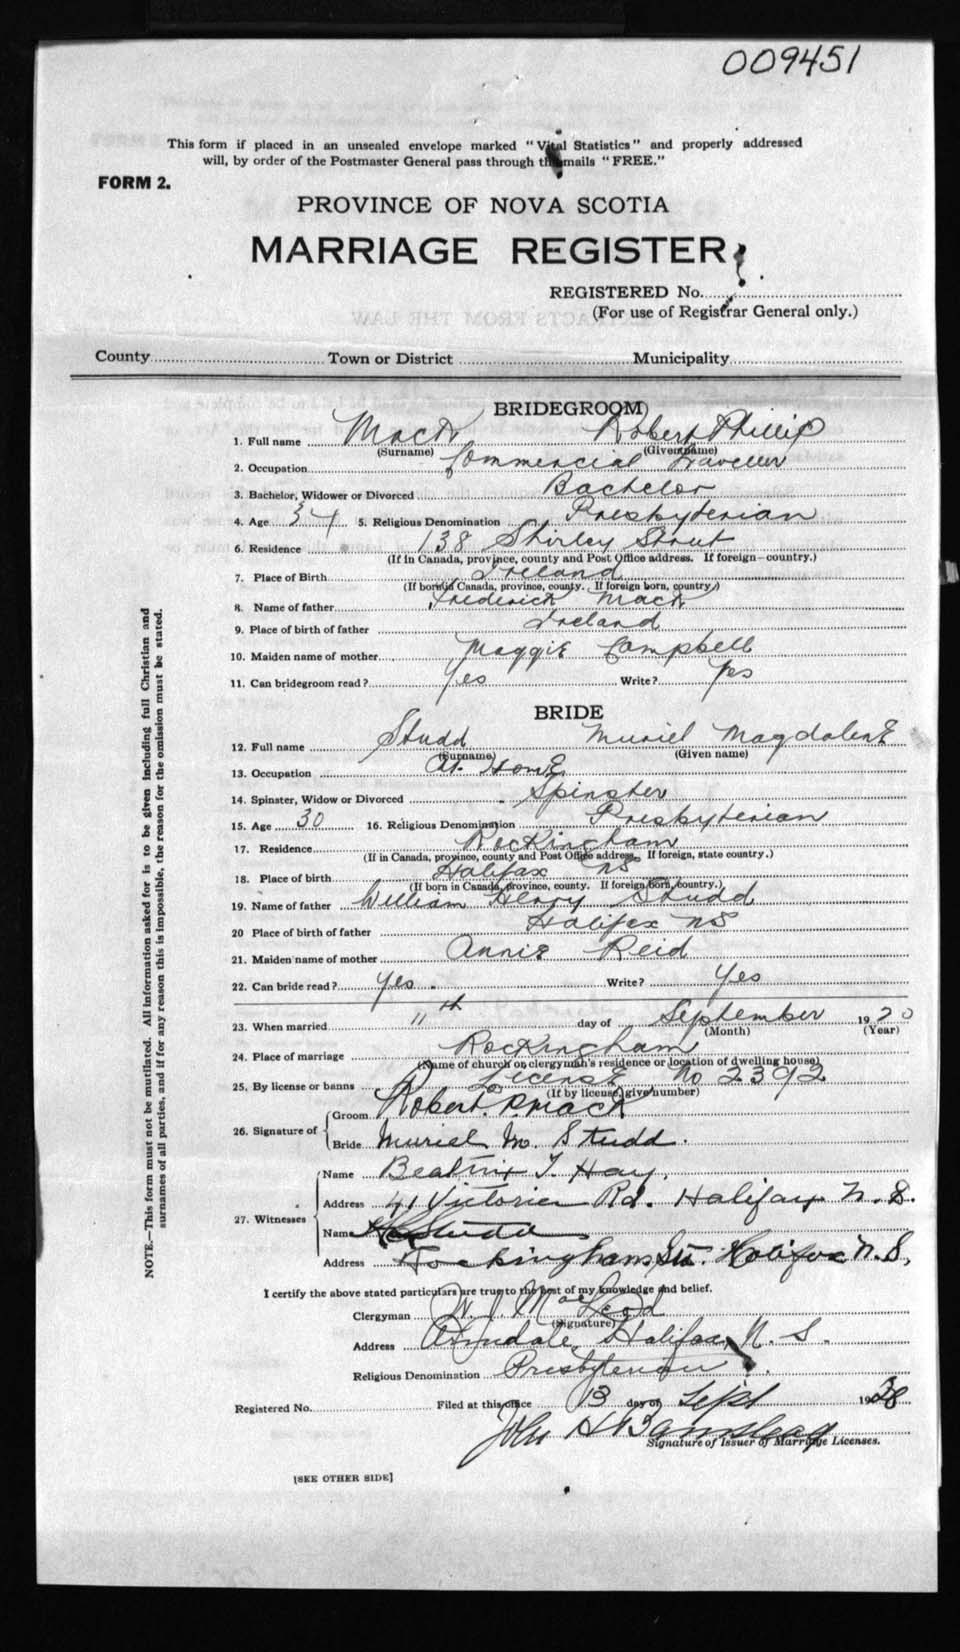 009451
This form if placed in an unsealed envelope marked "Vital Statistics" and properly addressed
will, by order of the Postmaster General pass through the mails "FREE."
FORM 2.
PROVINCE OF NOVA SCOTIA
MARRIAGE REGISTER
REGISTERED No.
(For use of Registrar General only.)
County Town or District Municipality
BRIDEGROOM
1. Full name Mack Robert Phillip
(Surname) (Given name)
2. Occupation Commercial Traveller
3. Bachelor, Widower or Divorced Bachelor
4. Age 34 5. Religious Denomination Presbyterian
6. Residence 138 Shirley Street
(If in Canada, province, county and Post Office address. If foreign country.)
7. Place of Birth Ireland
(If born in Canada, province, county. If foreign born, country.)
8. Name of father Frederick Mack
9. Place of birth of father Ireland
10. Maiden name of mother Maggie Campbell
11. Can bridegroom read? Yes Write? Yes
BRIDE
12. Full name Studd Muriel Magdalene
(Surname) (Given name)
13. Occupation At Home
14. Spinster, Widow or Divorced Spinster
15. Age 30 16. Religious Denomination Presbyterian
17. Residence Rockingham
(If in Canada, province, county and Post Office address. If foreign, state country.)
18. Place of birth Halifax NS
(If born in Canada, province, county. If foreign born, country.)
19. Name of father William Henry Studd
20 Place of birth of father Halifax NS
21. Maiden name of mother Annie Reid
22. Can bride read? Yes. Write? Yes
23. When married 11th day of September 1920
(Month) (Year)
24. Place of marriage Rockingham
(Name of church or clergyman's residence or location of dwelling house)
25. By license or banns License No 2392
(If by license, give number)
26. Signature of Groom Robert P Mack
Bride Muriel M. Studd.
27. Witnesses Name Beatrix T. Hay,
Address 41 Victoria Rd. Halifax N.S.
Name Studd
Address Rockingham Stn. Halifax N.S,
I certify the above stated particulars are true to the best of my knowledge and belief.
Clergyman MacLeod
(Signature)
Address Armdale, Halifax, N.S.
Religious Denomination Presbyterian.
Registered No. Filed at this office 13 day of Sept 19
John H
Signature of Issuer of Marriage Licenses.
[SEE OTHER SIDE]
NOTE.—This form must not be mutilated. All information asked for is to be given including full Christian and
surnames of all parties, and if for any reason this is impossible, the reason for the omission must be stated.